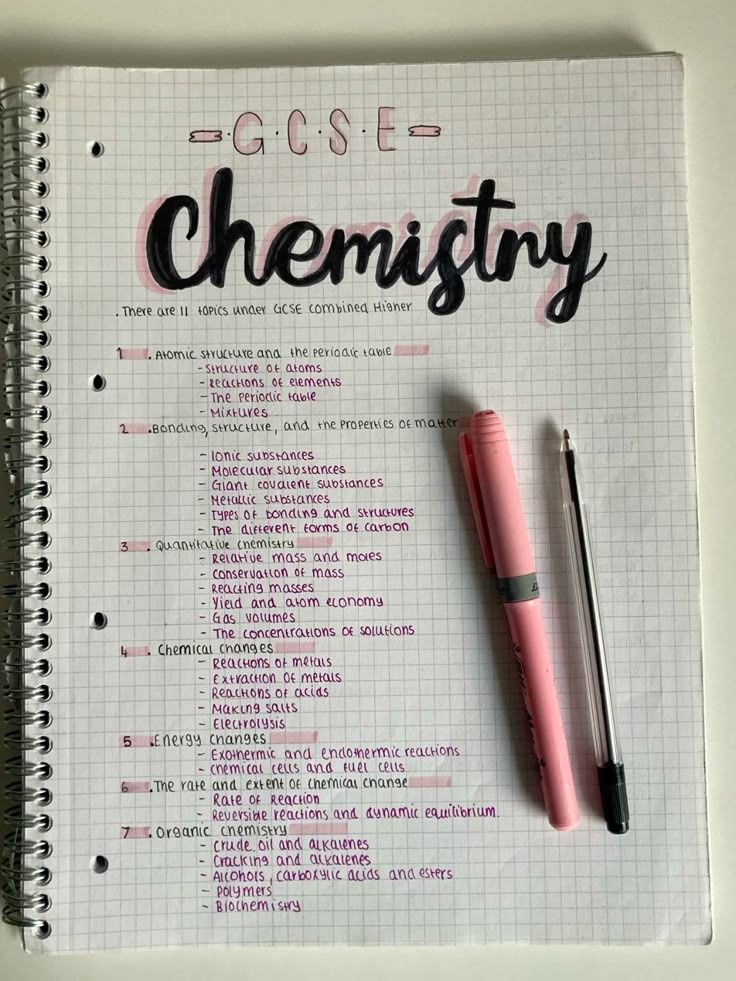 G.C.S.E
Chemistry
. There are 11 topics under GCSE combined Higher
1 . Atomic structure and the periodic table
- structure of atoms
- Reactions of elements
- The periodic table
- Mixtures
2 . Bonding, structure, and the properties of matter
- Ionic substances
- Molecular substances
- Giant covalent substances
- Metallic substances
- Types of bonding and structures
- The different forms of carbon
3 . Quantitative chemistry
- Relative mass and moles
- conservation of mass
- Reacting masses
- Yield and atom economy
- Gas volumes
- The concentrations of solutions
4 . Chemical changes
- Reactions of metals
- Extraction of metals
- Reactions of acids
- Making salts
- Electrolysis
5 . Energy changes
- Exothermic and endothermic reactions
- chemical cells and fuel cells
6 . The rate and extent of chemical change
- Rate of Reaction
- Reversible reactions and dynamic equilibrium.
7 . Organic chemistry
- Crude oil and alkalenes
- Cracking and alkalenes
- Alcohols, carboxylic acids and esters
- Polymers
- Biochemistry